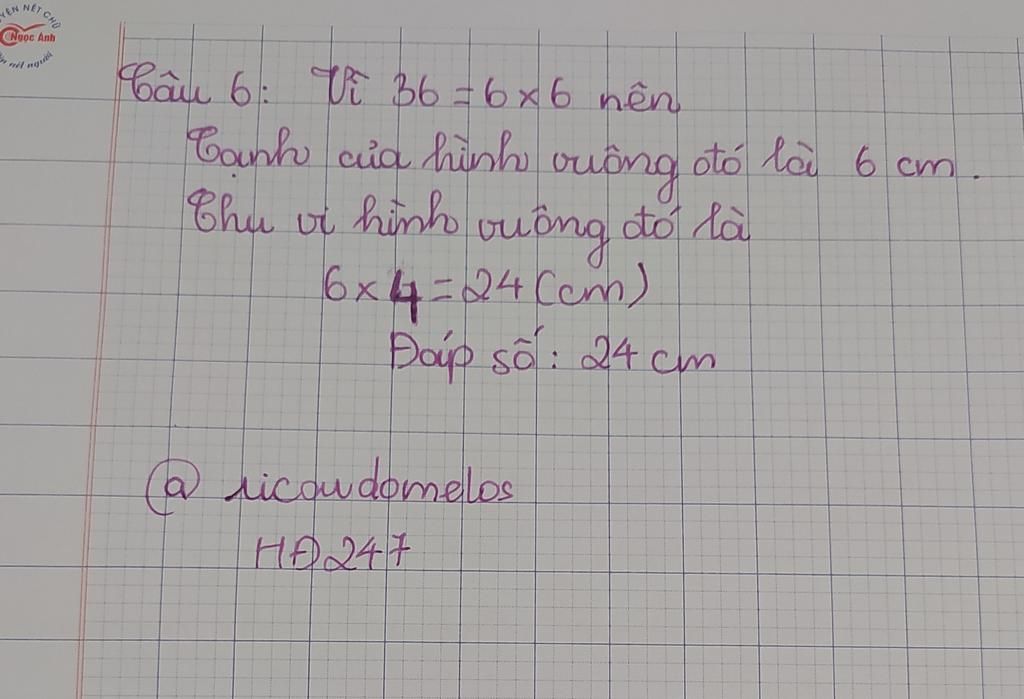 YÊN NÉT CHỮ
Ngọc Ánh
n nét người
Câu 6: Vì 36 = 6 × 6 nên
Cạnh của hình vuông đó là 6 cm.
Chu vi hình vuông đó là
6 × 4 = 24 (cm)
Đáp số: 24 cm
@ ricardomelos
HĐ247